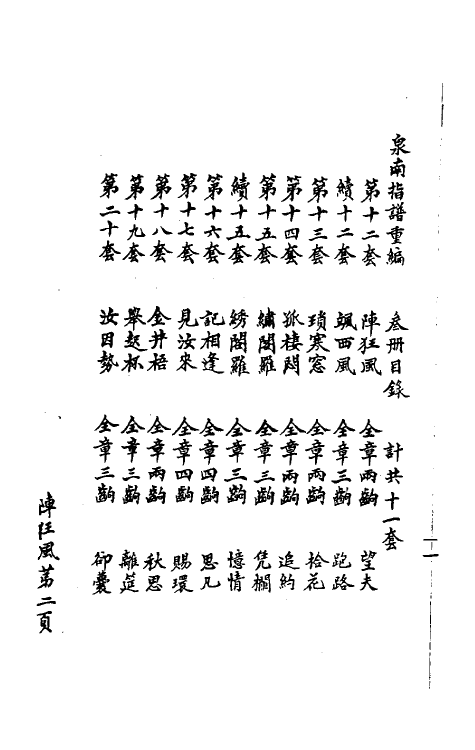 泉南指譜重編　叁册目錄　計共十一套
第十二套　陣狂風　全章兩齣　望夫
續十二套　颯西風　全章三齣　跑路
第十三套　瑣寒窓　全章兩齣　拾花
第十四套　孤棲悶　全章兩齣　追約
第十五套　繡閣羅　全章三齣　凭欄
續十五套　綉閣羅　全章三齣　憶情
第十六套　記相逢　全章四齣　思凡
第十七套　見汝來　全章四齣　賜環
第十八套　金井梧　全章兩齣　秋思
第十九套　舉起杯　全章三齣　離筵
第二十套　汝因勢　全章三齣　卻㜸
陣狂風第二頁